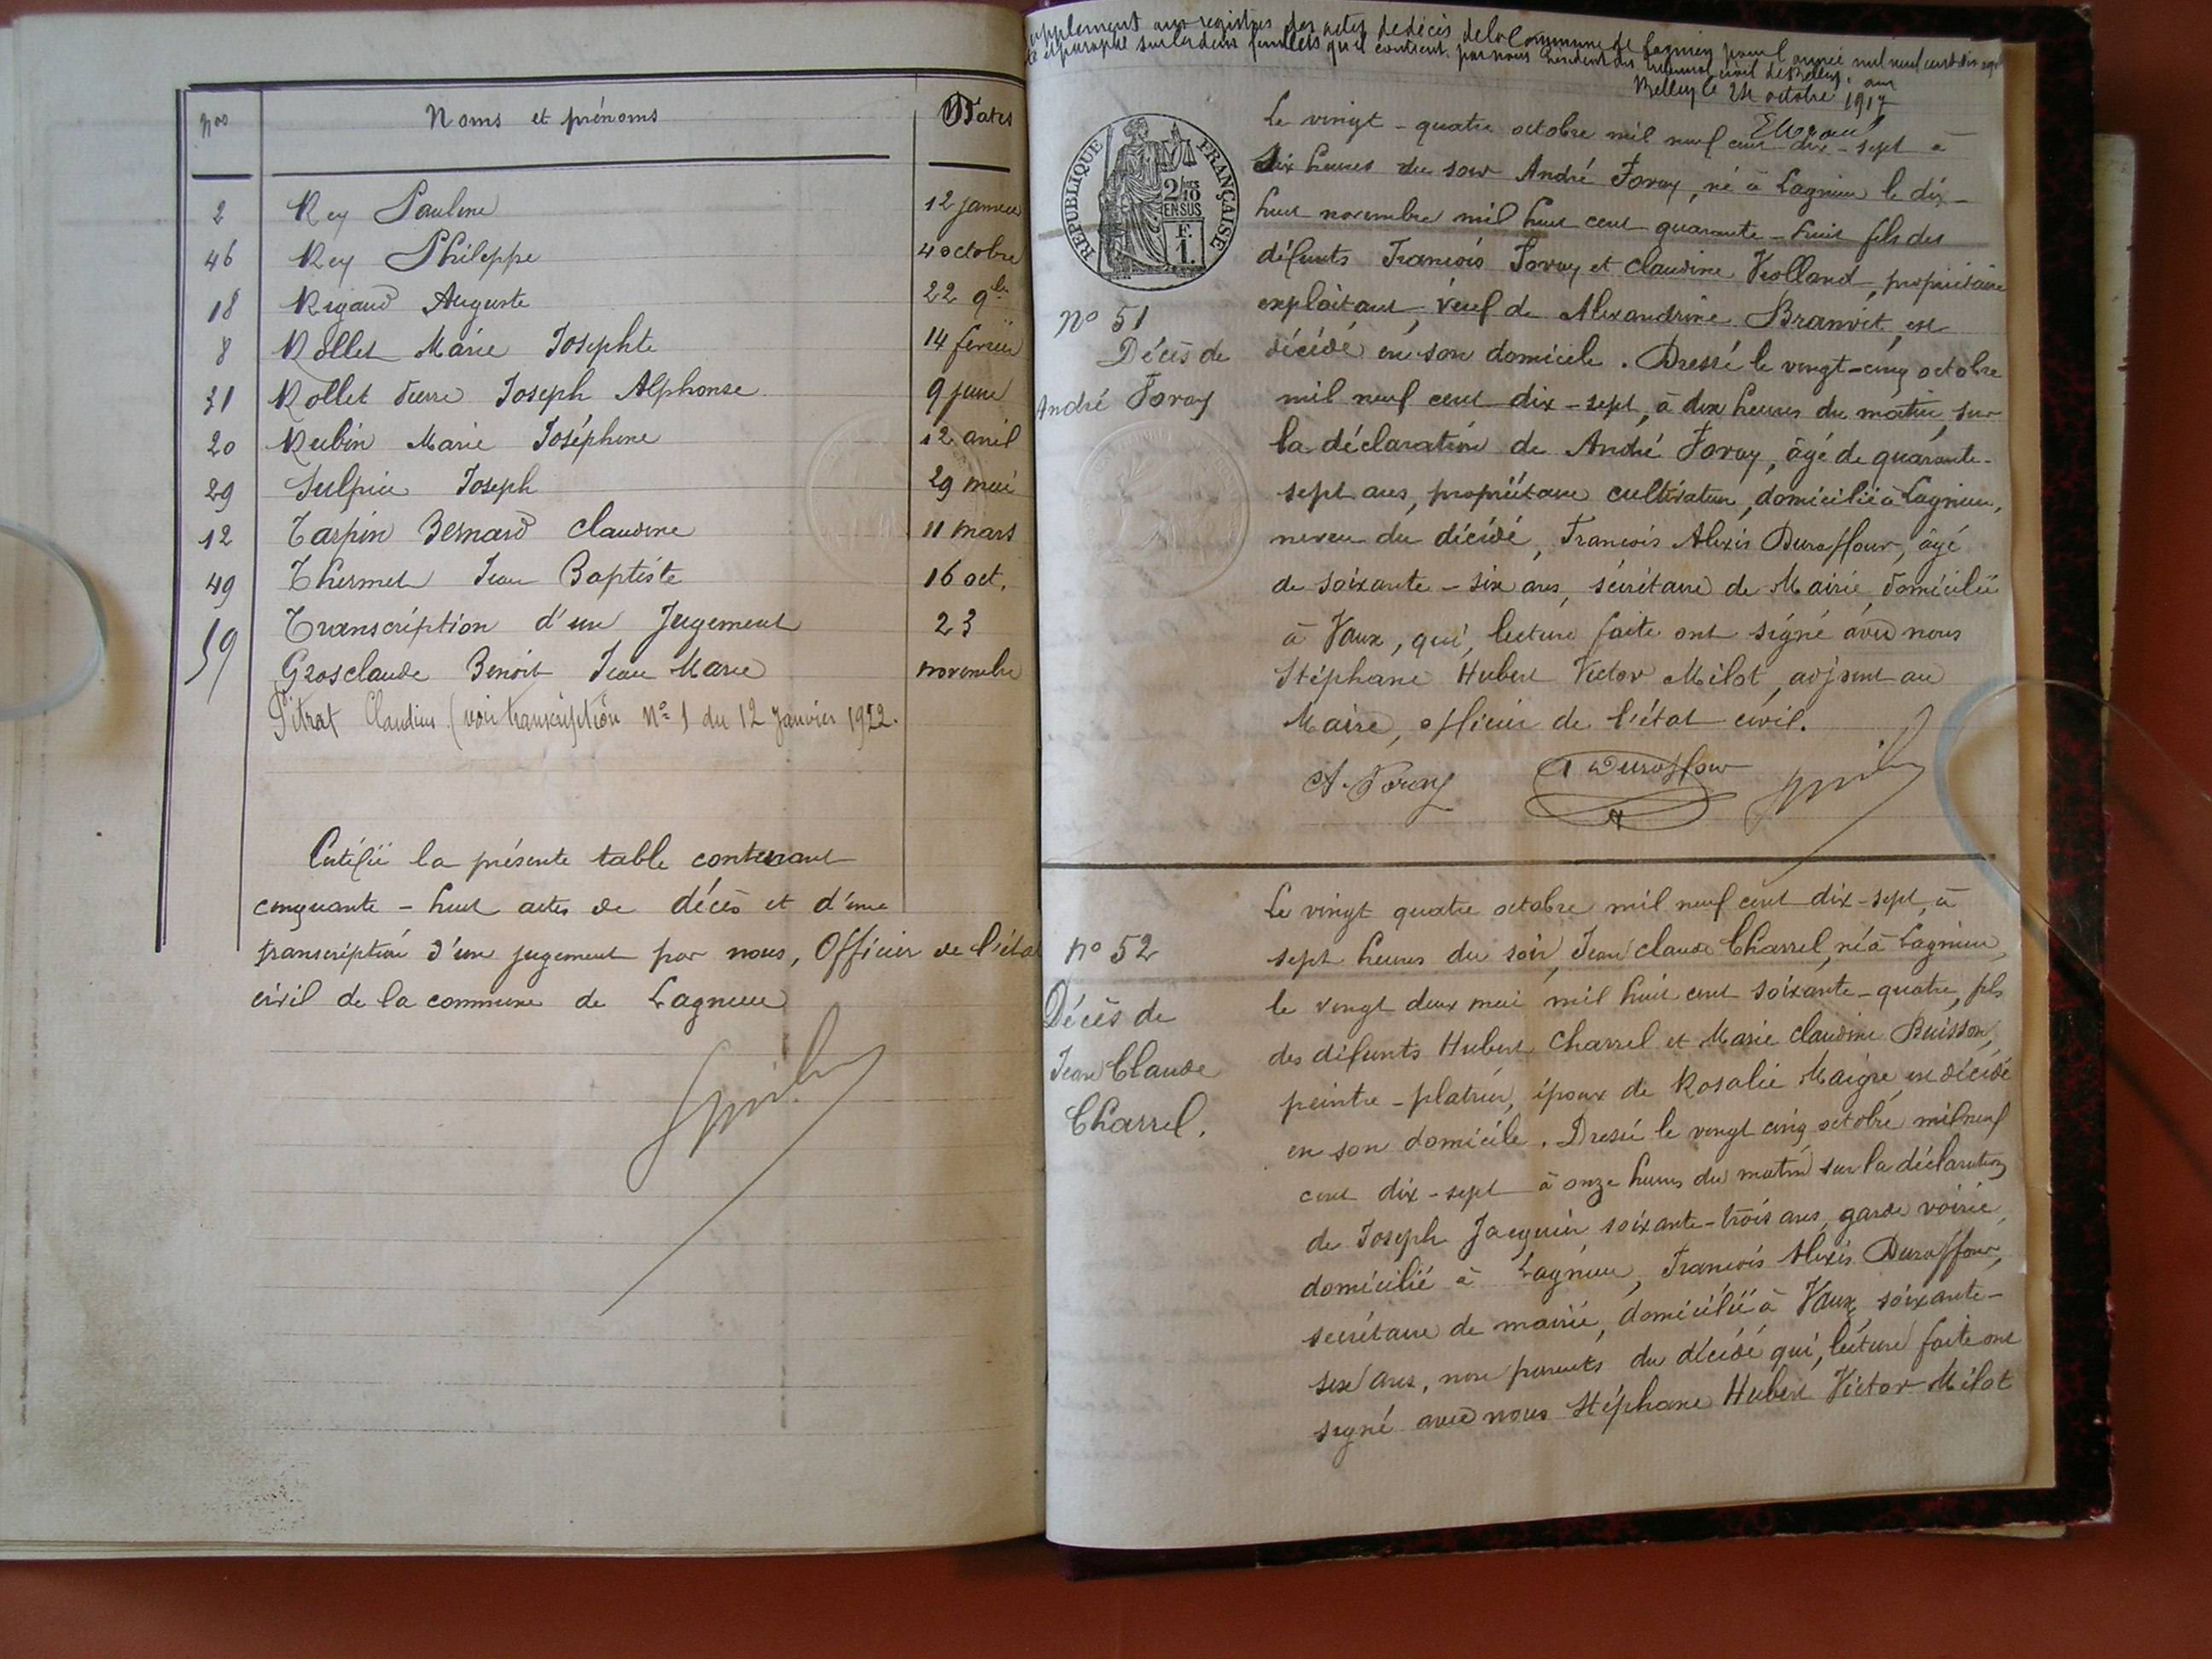 Nos Noms et prénoms Dates
2 Rey Pauline 12 janvier
46 Rey Philippe 4 octobre
18 Rigaud Auguste 22 9bre
8 Rollet Marie Josephte 14 février
31 Rollet Pierre Joseph Alphonse 9 juin
20 Rubin Marie Joséphine 12 avril
29 Sulpice Joseph 29 mai
12 Tarpin Bernard Claudine 11 mars
49 Thermet Jean Baptiste 16 oct.
59 Transcription d'un Jugement 23
Grosclaude Benoit Jean Marie novembre
Pitrat Claudius (voir transcription No 1 du 12 Janvier 1922.
Certifié la présente table contenant
cinquante - huit actes de décès et d'une
transcription d'un jugement par nous, Officier de l'état
civil de la commune de Lagnieu
supplement aux registres des actes de décès de la Commune de Lagnieu pour l'année mil neuf cent dix sept
et paraphé sur les deux feuillets qu'il contient par nous Président du tribunal civil de Belley.
Belley le 24 octobre 1917
RÉPUBLIQUE FRANÇAISE
2/10 EN SUS
F. 1.
No 51
Décès de
André Foray
Le vingt - quatre octobre mil neuf cent dix - sept à
six heures du soir André Foray, né à Lagnieu le dix -
huit novembre mil huit cent quarante - huit fils des
défunts François Foray et Claudine Violland, propriétaire
exploitant, veuf de Alexandrine Branvit, est
décédé en son domicile. Dressé le vingt-cinq octobre
mil neuf cent dix - sept, à dix heures du matin, sur
la déclaration de André Foray, âgé de quarante-
sept ans, propriétaire cultivateur, domicilié à Lagnieu,
neveu du décédé, François Alexis Duraffour, âgé
de soixante - six ans, sécrétaire de Mairie, domicilié
à Vaux, qui, lecture faite ont signé avec nous
Stéphane Hubert Victor Milot, adjoint au
Maire, officier de l'état civil.
A. Foray Duraffour
No 52
Décès de
Jean Claude
Charrel.
Le vingt quatre octobre mil neuf cent dix - sept, à
sept heures du soir, Jean Claude Charrel, né à Lagnieu,
le vingt deux mai mil huit cent soixante - quatre, fils
des défunts Hubert Charrel et Marie Claudine Buisson,
peintre - platrier, époux de Rosalie Maigre, est décédé
en son domicile. Dressé le vingt cinq octobre mil neuf
cent dix - sept à onze heures du matin sur la déclaration
de Joseph Jacquier soixante - trois ans, garde voirie,
domicilié à Lagnieu, François Alexis Duraffour,
secrétaire de mairie, domicilié à Vaux, soixante -
six ans, non parents du décédé qui, lecture faite ont
signé avec nous Stéphane Hubert Victor Milot